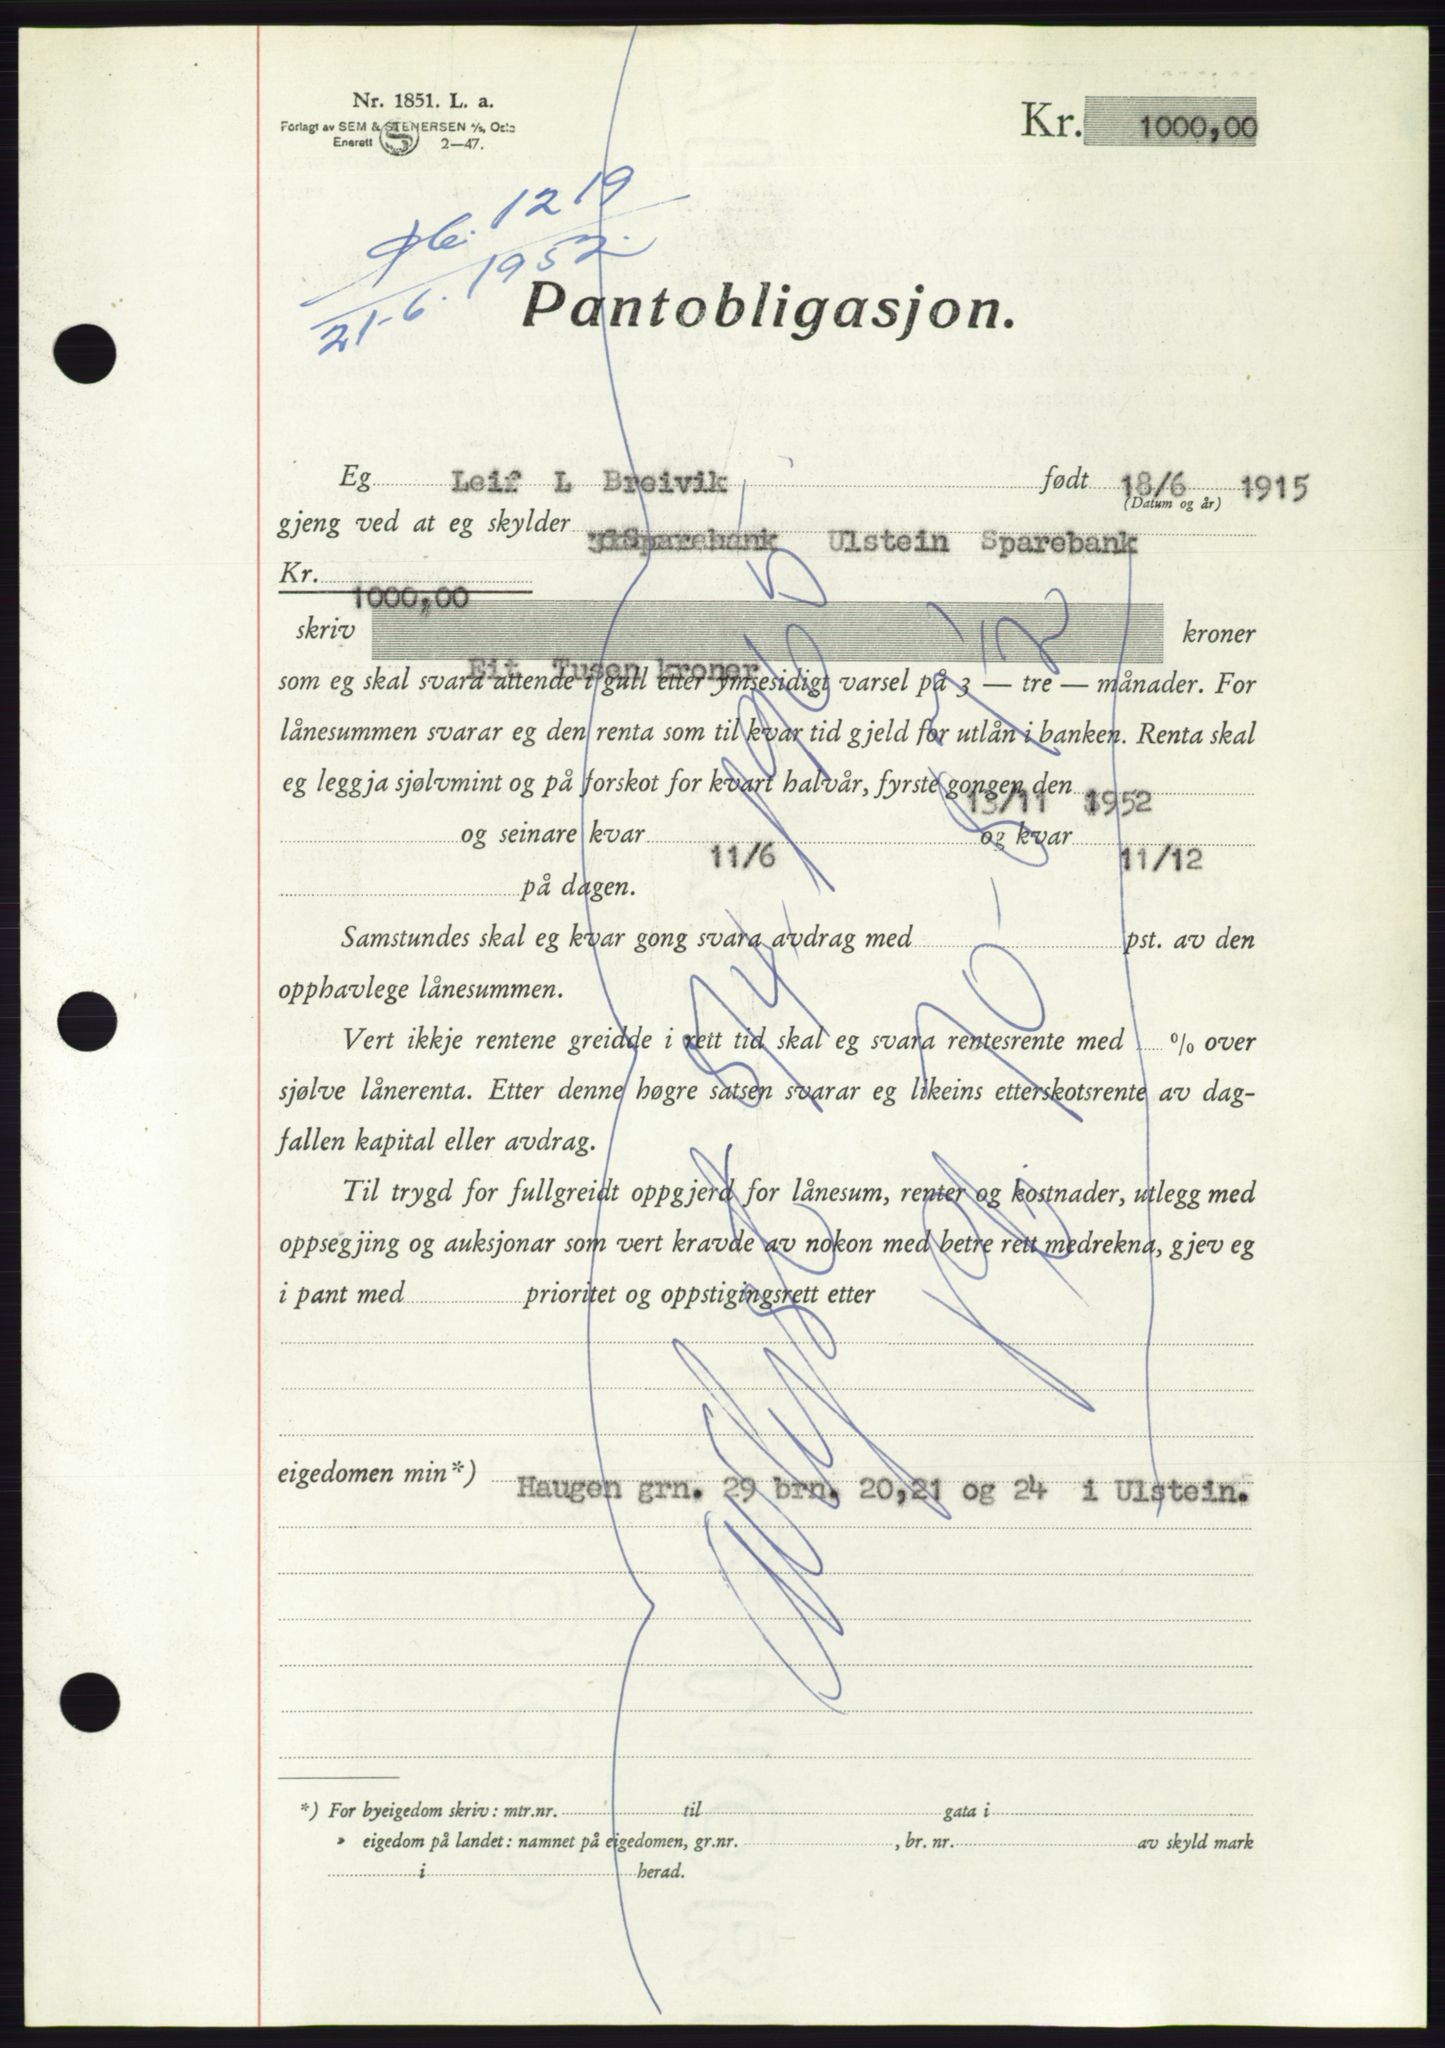 Nr. 1851. L. a.
Forlagt av SEM & STENERSEN A/S, Oslo
Enerett 2—47.
Kr. 1000,00
1219
1952.
21-6.
Pantobligasjon.
Eg Leif L Breivik født 18/6 1915
(Datum og år)
gjeng ved at eg skylder Ulstein Sparebank
Kr. 1000,00
skriv Eit Tusen kroner kroner
som eg skal svara attende i gull etter ymsesidigt varsel på 3 — tre — månader. For
lånesummen svarar eg den renta som til kvar tid gjeld for utlån i banken. Renta skal
eg leggja sjølvmint og på forskot for kvart halvår, fyrste gongen den 13/11 1952
og seinare kvar 11/6 og kvar 11/12
på dagen.
Samstundes skal eg kvar gong svara avdrag med pst. av den
opphavlege lånesummen.
Vert ikkje rentene greidde i rett tid skal eg svara rentesrente med % over
sjølve lånerenta. Etter denne høgre satsen svarar eg likeins etterskotsrente av dag-
fallen kapital eller avdrag.
Til trygd for fullgreidt oppgjerd for lånesum, renter og kostnader, utlegg med
oppsegjing og auksjonar som vert kravde av nokon med betre rett medrekna, gjev eg
i pant med prioritet og oppstigingsrett etter
eigedomen min*) Haugen grn. 29 brn. 20,21 og 24 i Ulstein.
*) For byeigedom skriv: mtr.nr. til gata i
» eigedom på landet: namnet på eigedomen, gr.nr. , br. nr. av skyld mark
i herad.